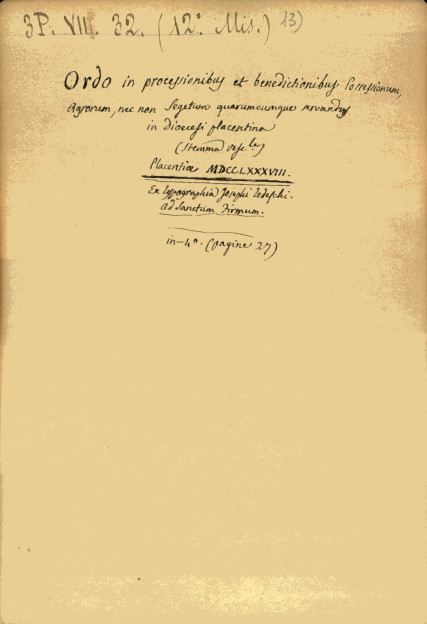 3P. VII. 32. (12º Mis.) 13)
Ordo in processionibus et benedictionibus Possessionum,
Agrorum, nec non Segetum quarumcumque servandus
in Dioecesi placentina
(Stemma vesc.le)
Placentiæ MDCCLXXXVIII.
Ex Typographia Josephi Tedeschi.
ad Sanctum Firmum.
in-4º. (pagine 27)